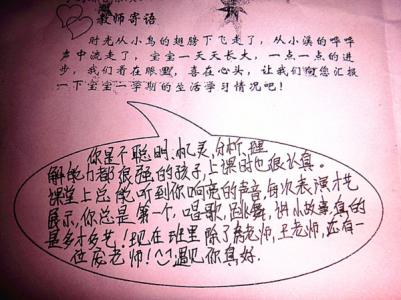 教师寄语
时光从小鸟的翅膀下飞走了，从小溪的哗哗
声中流走了，宝宝一天天长大，一点一点的进
步，我们看在眼里，喜在心头，让我们向您汇报
一下宝宝一学期的生活学习情况吧！
你是个聪明.机灵,分析.理
解能力都很强的孩子,上课时也很认真。
课堂上总能听到你响亮的声音.每次表演才艺
展示,你总是第一个,唱歌,跳舞,讲小故事,真的
是多才多艺!现在班里除了 老师,王老师,还有一
位 老师!遇见你真好.